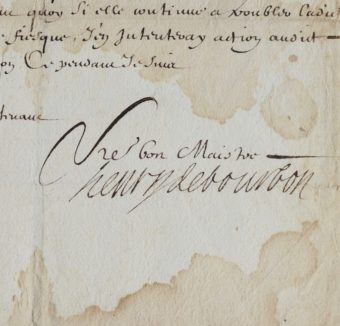 quoy si elle continue a troubler ladit
fiesque, J'en Intenteray action audit
Ce pendant Je suis
Vre bon Maistre
henry de bourbon